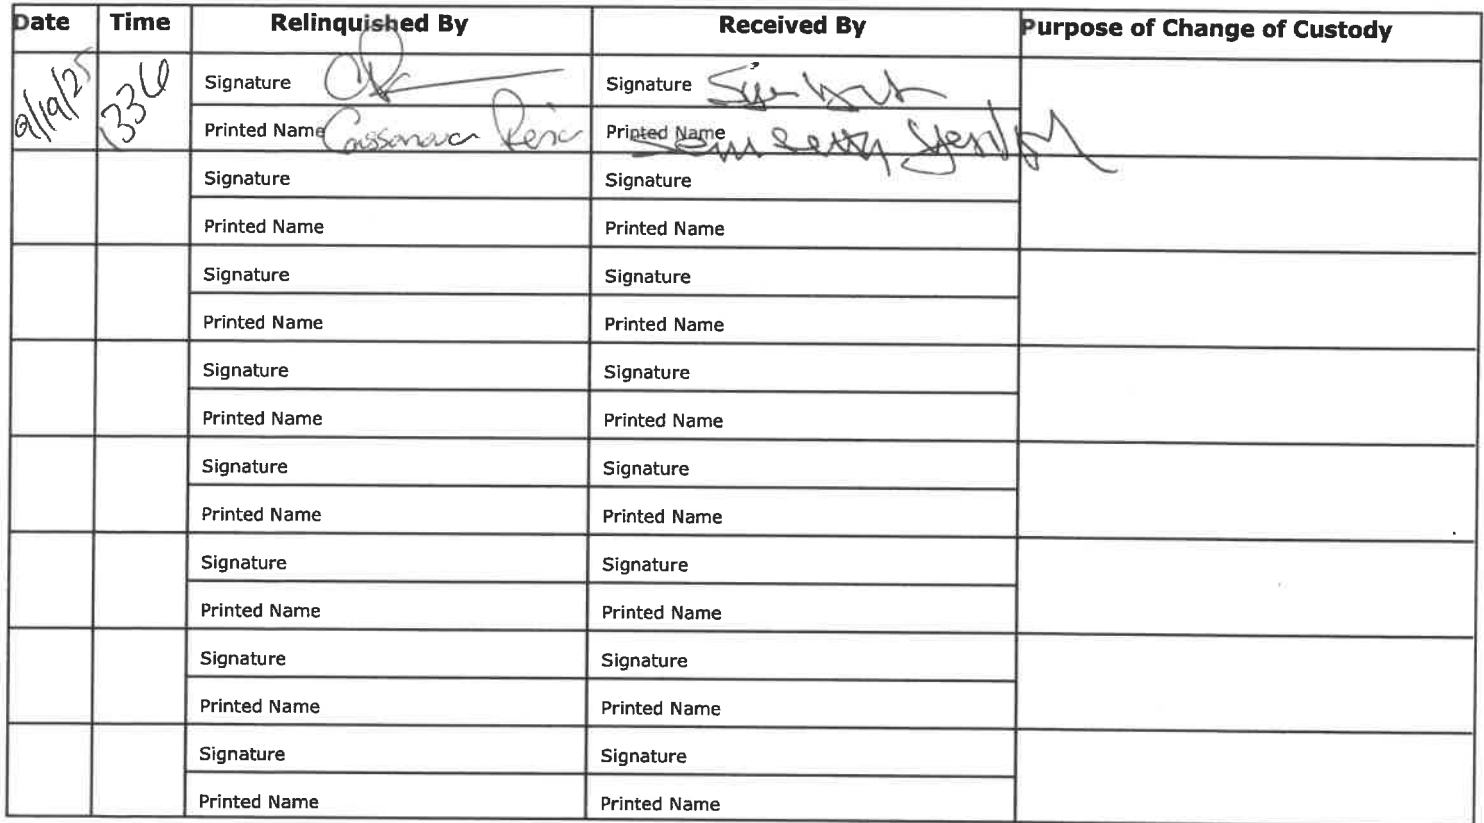 Date Time Relinquished By Received By Purpose of Change of Custody
1336 Signature Signature
Printed Name Cassanova Printed Name
Signature Signature
Printed Name Printed Name
Signature Signature
Printed Name Printed Name
Signature Signature
Printed Name Printed Name
Signature Signature
Printed Name Printed Name
Signature Signature
Printed Name Printed Name
Signature Signature
Printed Name Printed Name
Signature Signature
Printed Name Printed Name